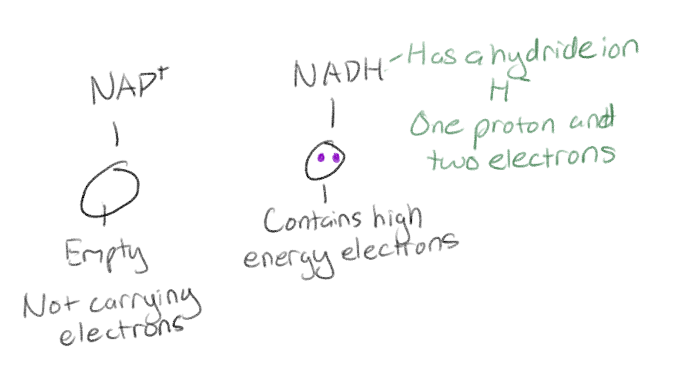 NAP⁺
Empty
Not carrying
electrons
NADH
Contains high
energy electrons
Has a hydride ion
H⁻
One proton and
two electrons